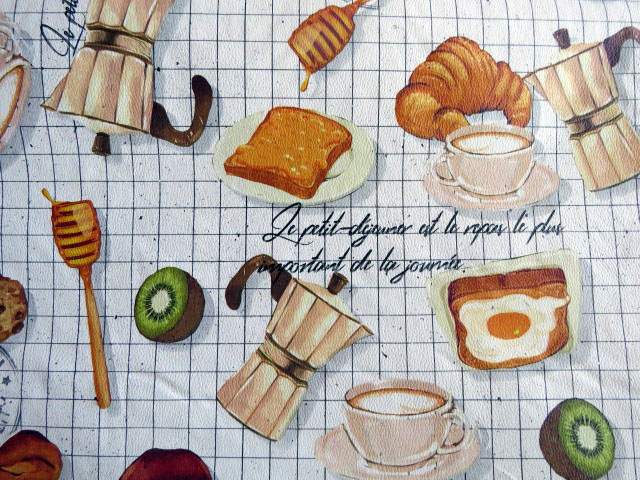 Le petit
Le petit-déjeuner est le repas le plus
important de la journée.